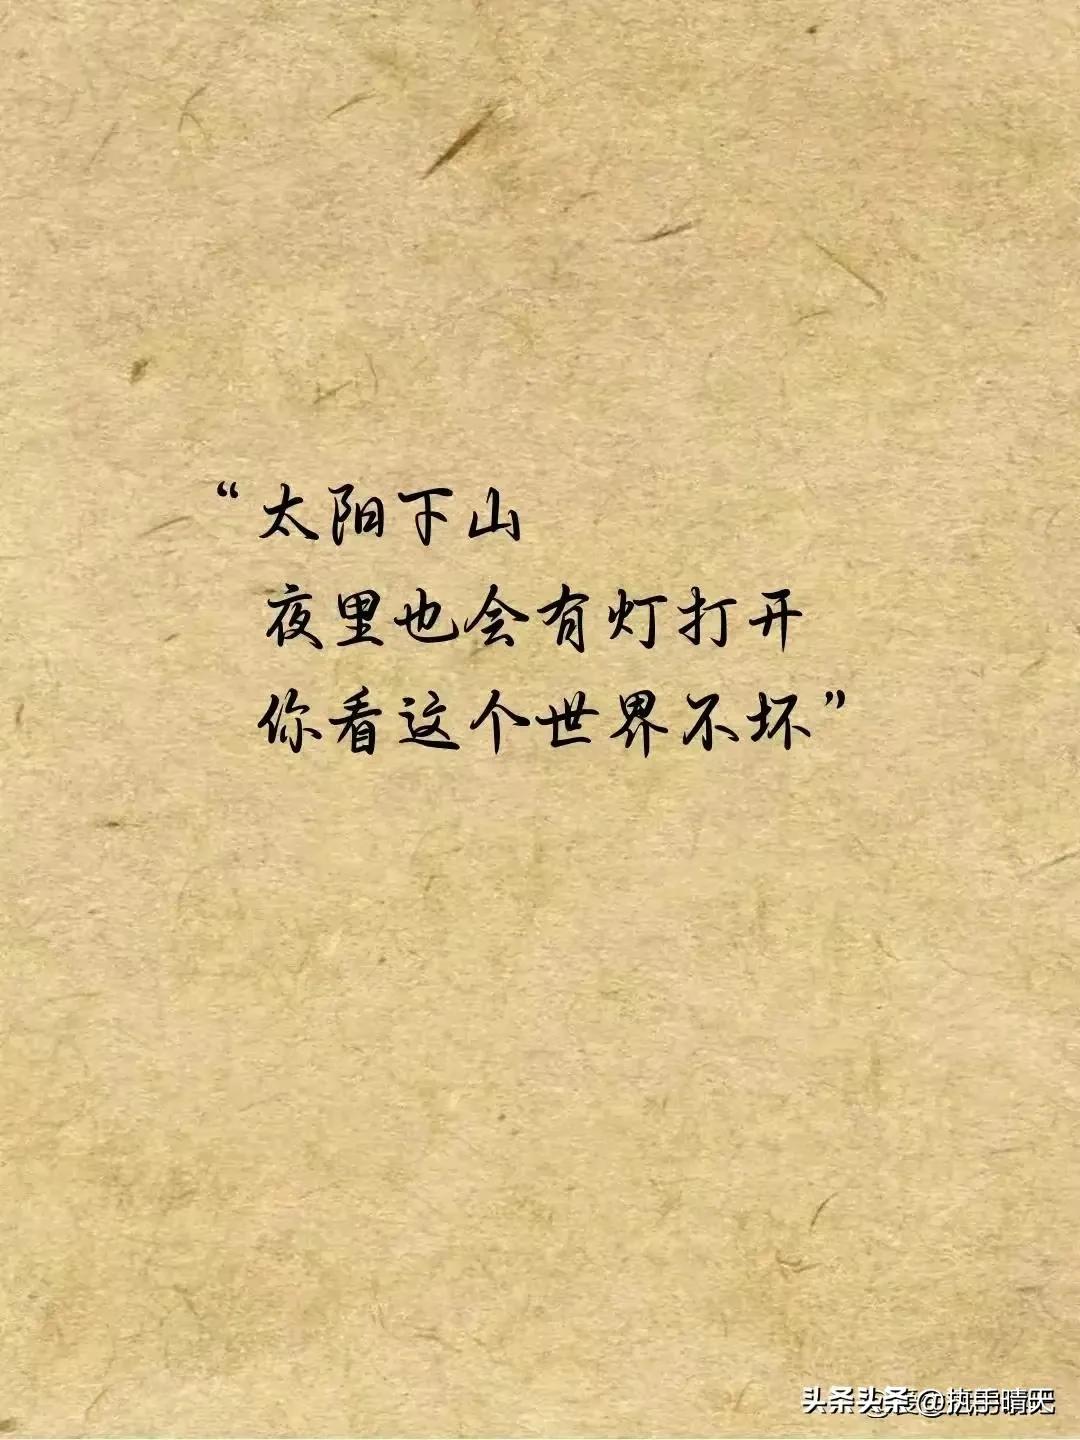 “太阳下山
夜里也会有灯打开
你看这个世界不坏”
头条 @执手晴天